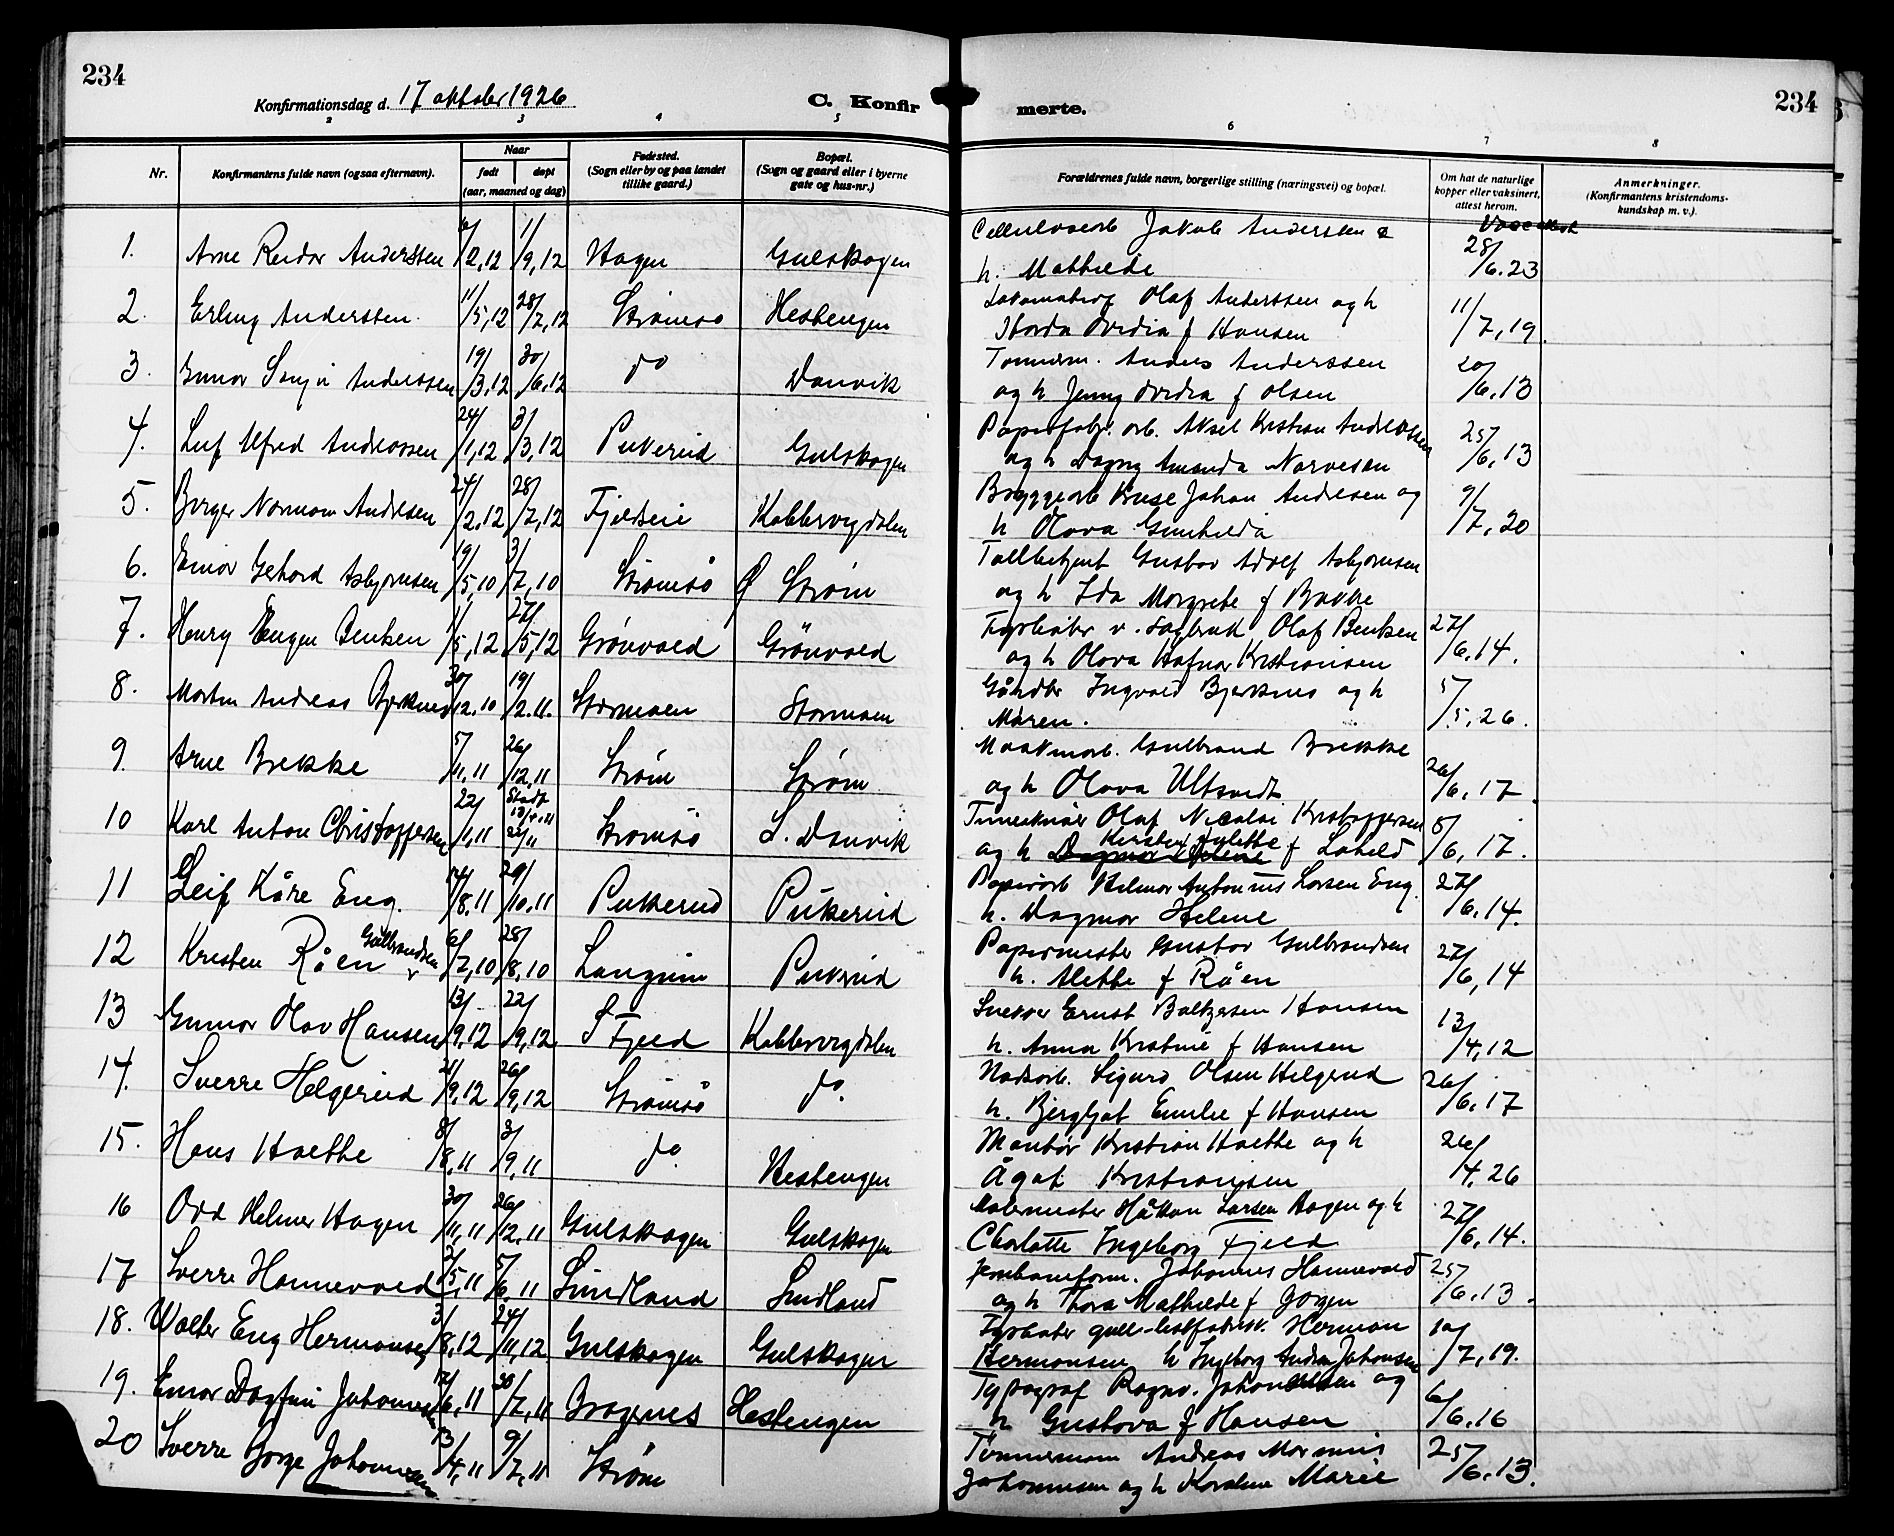 234
Konfirmationsdag d. 17 oktober 1926
C. Konfir
merte.
234
2 3 4 5 6 7 8
Nr.
Konfirmantens fulde navn (ogsaa efternavn).
Naar
født
døpt
(aar, maaned og dag)
Fødested.
(Sogn eller by og paa landet
tillike gaard.)
Bopæl.
(Sogn og gaard eller i byerne
gate og hus-nr.)
Forældrenes fulde navn, borgerlige stilling (næringsvei) og bopæl.
Om hat de naturlige
kopper eller vaksinert,
attest herom.
Anmerkninger.
(Konfirmantens kristendoms-
kundskap m. v.).
1. Arne Reidar Anderssen /2,12 1/9,12 Hagen Gulskogen Jakob Anderssen 28/6.23
h. Mathilde
2. Erling Anderssen 11/5,12 28/7,12 Strømsø Hestengen Olaf Anderssen og h 11/7,19.
Ovidia f Hansen
3. Gunnar Anderssen 19/3,12 30/6,12 do Danvik Anders Anderssen 20/6.13
og h Jenny Ovidia f Olsen
4. Leif Alfred Andreassen 24/1,12 3/3,12 Pukerud Gulskogen Papirfabr. arb. Aksel Kristian Andreassen 25/6,13
og h Dagny Amanda Narvesen
5. Birger Norman Andresen 24/2,12 28/7,12 Kobbervigdalen Bryggearb Johan Andresen og 9/7,20
h Olava Gunhilda
6. Einar Gerhard Asbjørnsen 19/5,10 3/7,10 Strømsø Ø Strøm Tollbetjent Gustav Adolf Asbjørnsen
og h Ida Margrete f Bakke
7. Henry Eugen Bentsen 1/5,12 27/5,12 Grønvold Grønvold Fyrbøter v. sagbruk Olaf Bentsen 27/6.14.
og h Olava Kristiansen
8. Morten Andreas Bjerknes 30/12.10 19/2.11. Stormoen Stormoen Gårdbr Ingvald Bjerknes og h 5/5,26.
Maren.
9. Arne Brekke 5/11,11 26/12,11 Strøm Strøm Gulbrand Brekke 26/6,17
og h Olava
10 Karl Anton Christoffersen 22/1,11 Strømsø S. Danvik Olaf Nicolai Kristoffersen 8/6,17.
og h Kirsten f
11 Leif Kåre Eng. /8,11 29/10,11 Pukerud Pukerud Papirarb Hilmar Antonius Larsen Eng 27/6,14.
h. Dagmar Helene
12 Kristen Råen Gulbrandsen 6/7,10 28/8,10 Langum Pukerud Papirmester Gustav Gulbrandsen 27/6,14
h. Alette f Råen
13 Gunnar Olav Hansen 13/9,12 22/9,12 S Fjeld Kobbervigdalen Snekker Ernst Baltzersen Hansen 13/4,12
h. Anna Kristine f Hansen
14. Sverre Helgerud 21/9,12 26/9,12 Strømsø do. Sigurd Olsen Helgerud 26/6,17
h. Bergljot Emilie f Hansen
15. Hans Hoette 8/8,11 3/9,11 do. Hestengen Montør Kristian Hoette og h 26/4,26
Ågot Kristiansen
16 Odd Helmer Hagen 30/11,11 26/12.11 Gulskogen Gulskogen Malermester Håkon Larsen Hagen og h 27/6,14.
Charlotte Ingeborg Fjeld
17 Sverre Hannevold 2/5,11 5/6,11 Sundland Sundland Jernbaneform. Johannes Hannevold 25/6.13.
og h Thora Mathilde f
18. Walter Eng Hermansen 3/8,12 24/11,12 Gulskogen Gulskogen Fyrbøter Herman /7,19.
Hermansen h Ingeborg Johansen
19. Einar Dagfin Johannesen 12/6,11 30/7,11 Bragernes Hestengen Typograf Ragnv. og 6/6,16
h Gustava f Hansen
20 Sverre Johannesen 13/4,11 9/7,11 Strøm Tømmermann Andreas 25/6.13.
Johannesen og h Karoline Marie